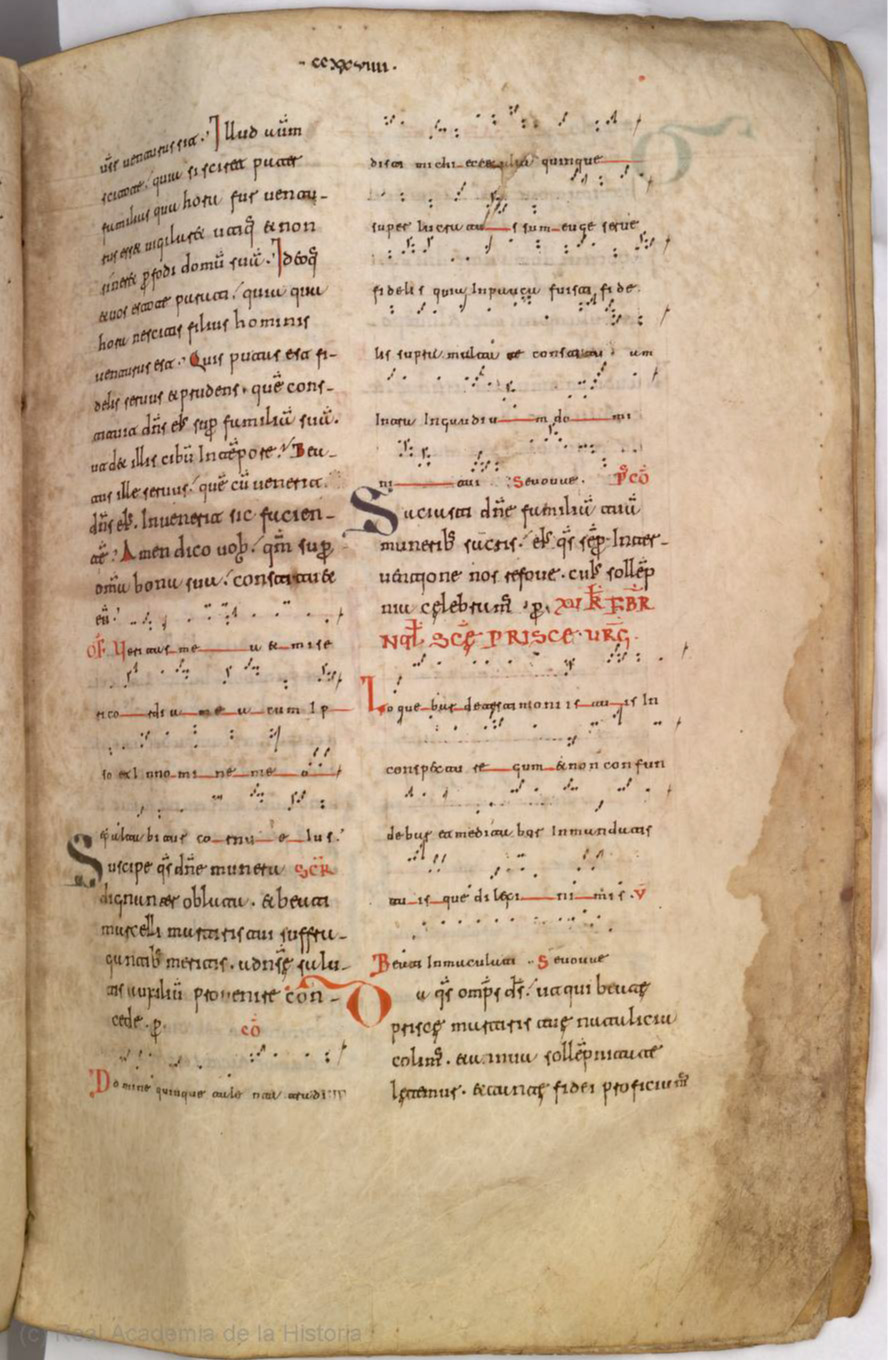 ·ccxxviiii·
ur̄ uenturus sit. Illud aūm
scitote. quia si sciret pater
familias qua hora fur uentu-
rus esset uigilaret utiq̄ & non
sineret ꝑfodi domū suā. Ideoq̄
& uos estote parati. quia qua
hora nescitis filius hominis
uenturus est. Quis putas est fi-
delis seruus & prudens. quē cons-
tituit dn̄s suꝑ familiā suā.
ut det illis cibū In tēpore. Bea-
tus ille seruus. quē cū uenerit
dn̄s Inuenerit sic facien-
tē. Amen dico uob. qm̄ suꝑ
omīa bona sua. constituet
eū.
Of. Ueritas me a & mise
rico rdi a me a cum Ip
so & In no mi ne me o
exaltabitur co rnu e ius.
Suscipe q̄s dn̄e munera
dignanter oblata. & beati
marcelli martiris tui suffra-
gantib; meritis. ad nr̄ę salu-
tis auxiliū prouenire con-
cede. ꝑ. cō
Domine quinque talenta tradidi
disti michi ecce alia quinque
super lucratu s sum euge serue
fidelis quia In pauca fuisti fide
lis supra multa te constitu am
Intra In gaudiu m do mi
ni tui Seuouae. P̄ cō
Saciasti dn̄e familiā tuā
munerib; sacris. q̄s sēꝑ Inter-
uentione nos refoue. cui; sollēp
nia cęlebram̄. ꝑ. XV K̄ FBR
Nat̄ SCĘ PRISCE. URḠ.
Loquebar de testimoniis tu is In
conspectu re gum & non confun
debar & meditabar In mandatis
tu is que dilexi ni mis. V
Beati Inmaculati. Seuouae
Da q̄s omp̄s ds̄. ut qui beatę
priscę martiris tuę natalicia
colim̄. & annua sollēpnitate
lętemur. & tantę fidei proficiam̄
(c) Real Academia de la Historia